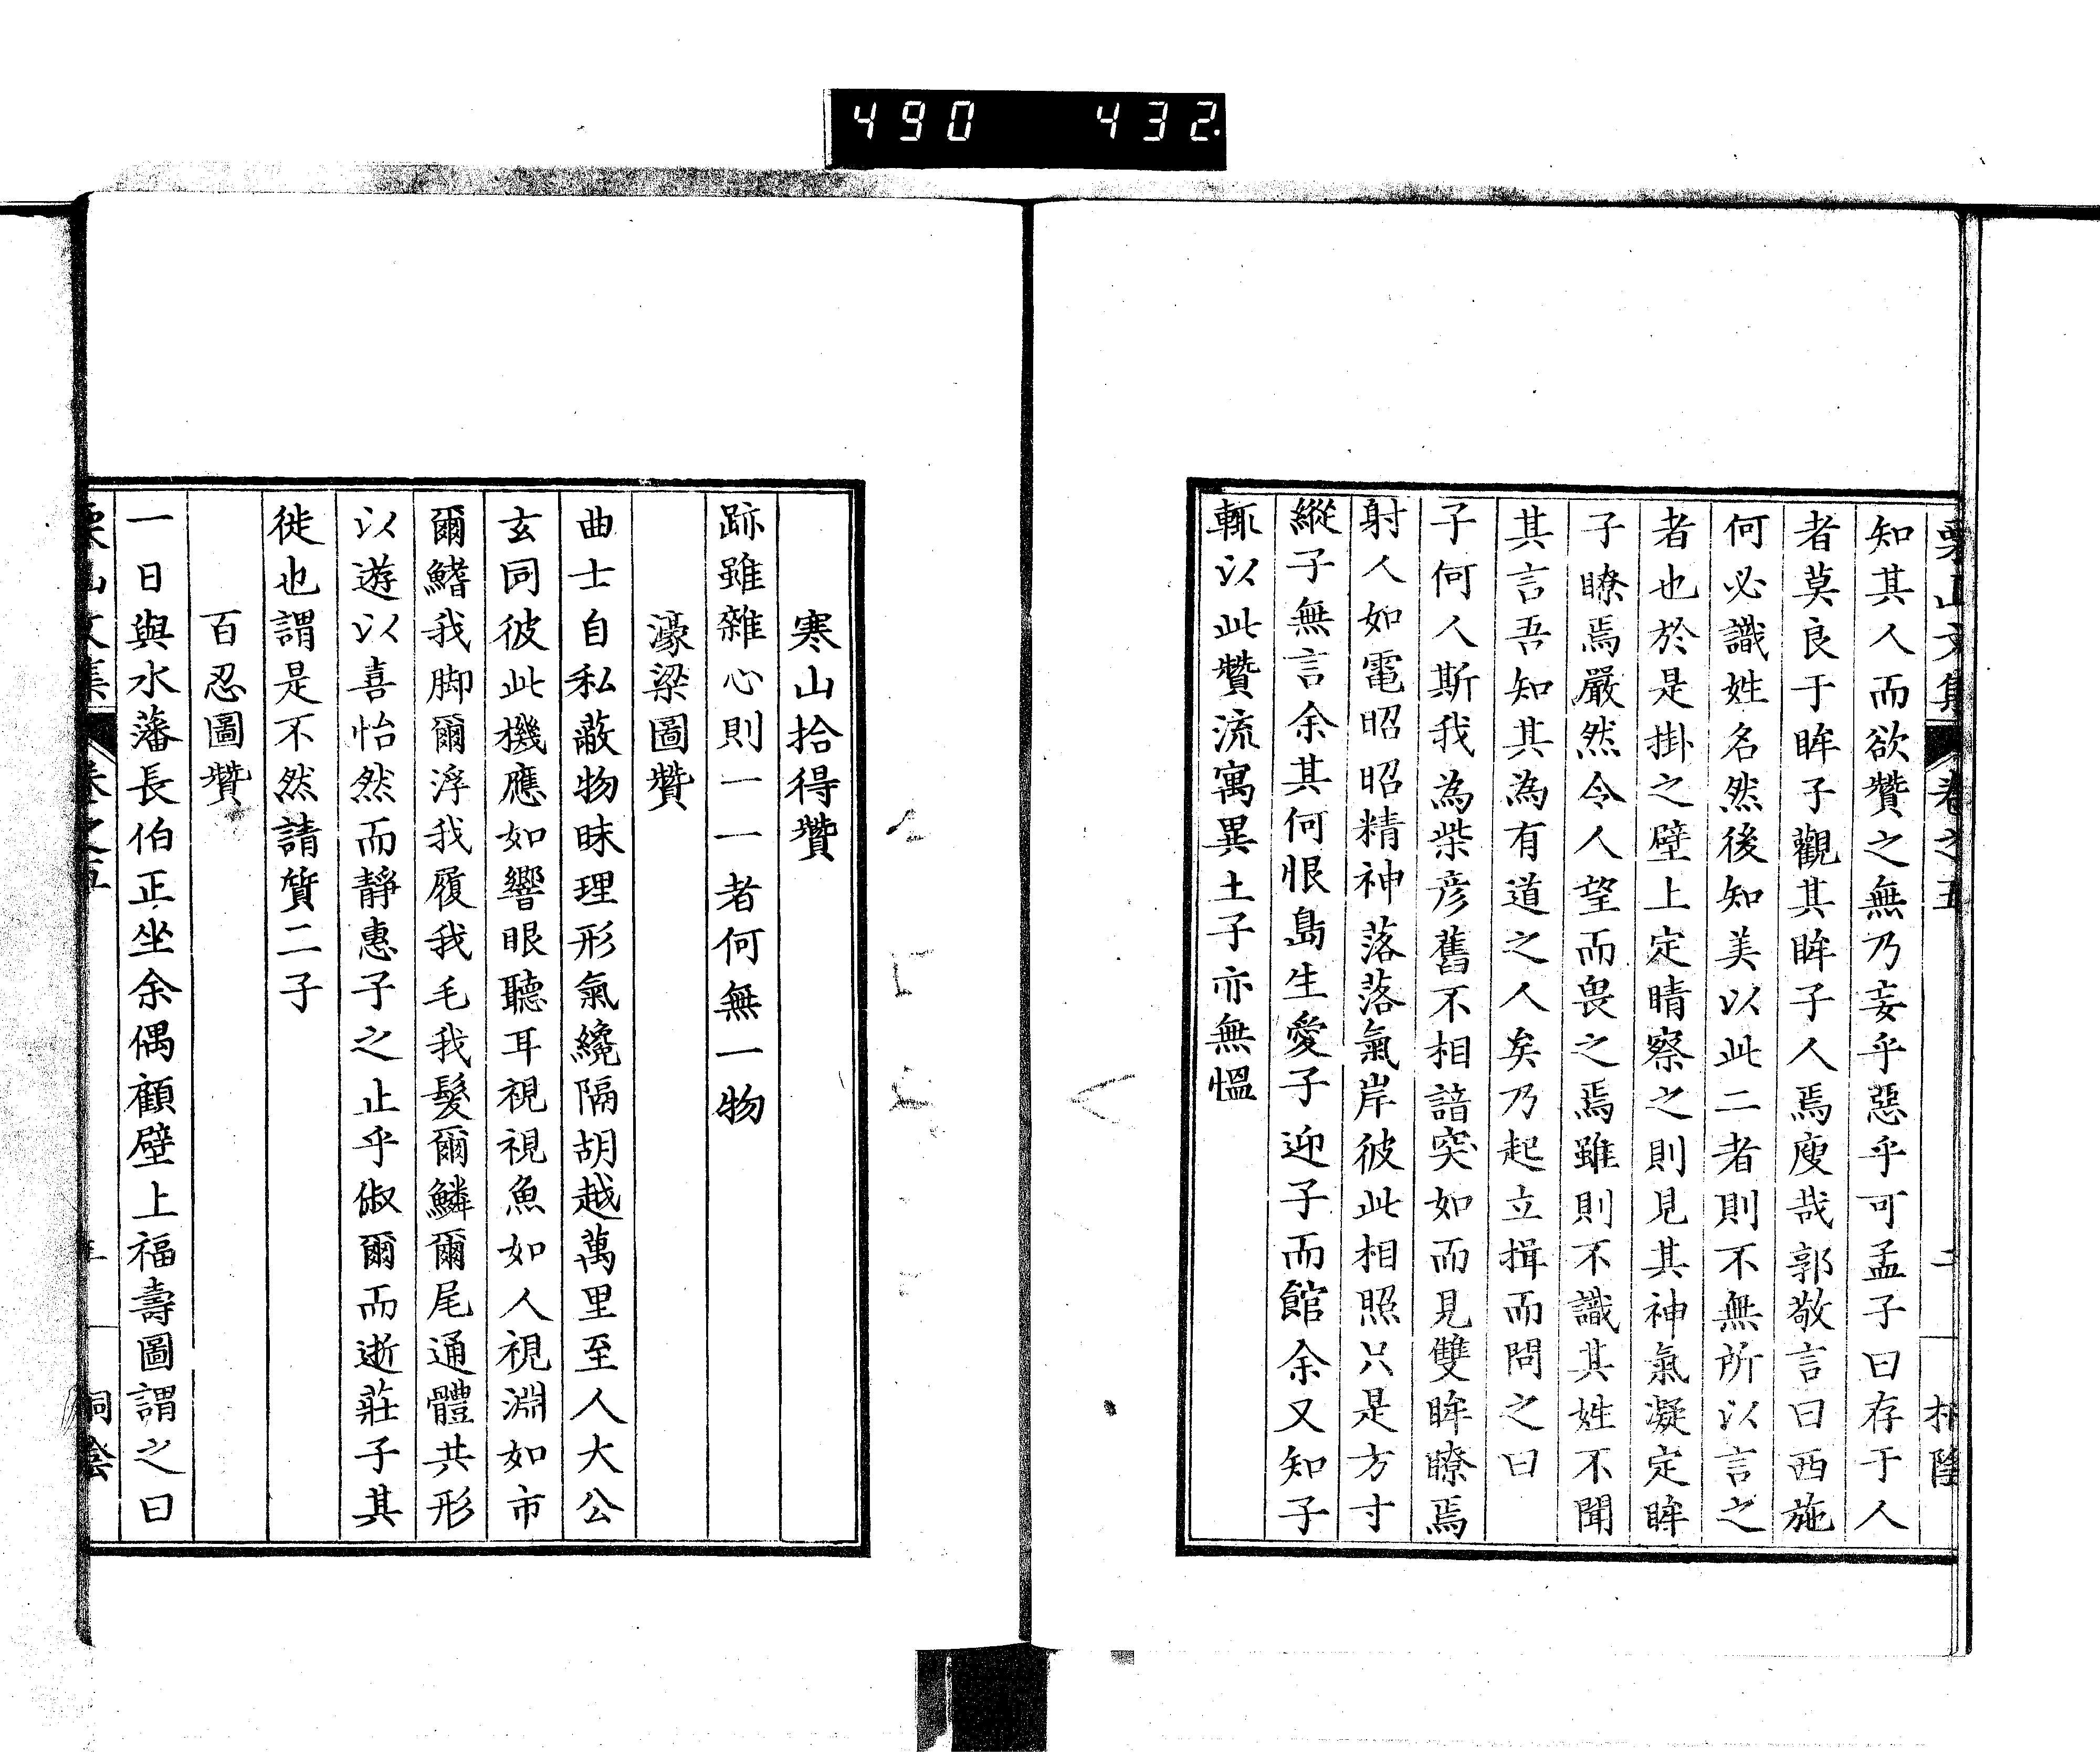 490 432.
栗山文集 卷之五 二
知其人而欲贊之無乃妄乎惡乎可孟子曰存于人
者莫良于眸子觀其眸子人焉廋哉郭敬言曰西施
何必識姓名然後知美以此二者則不無所以言之
者也於是掛之壁上定晴察之則見其神氣凝定眸
子瞭焉嚴然令人望而畏之焉雖則不識其姓不聞
其言吾知其為有道之人矣乃起立揖而問之曰
子何人斯我為柴彦舊不相諳突如而見雙眸瞭焉
射人如電昭昭精神落落氣岸彼此相照只是方寸
縱子無言余其何恨島生愛子迎子而館余又知子
輒以此贊流寓異土子亦無慍
寒山拾得贊
跡雖雜心則一一者何無一物
濠梁圖贊
曲士自私蔽物昧理形氣纔隔胡越萬里至人大公
玄同彼此機應如響眼聽耳視視魚如人視淵如市
爾鰭我脚爾浮我履我毛我髮爾鱗爾尾通體共形
以遊以喜怡然而靜惠子之止乎俶爾而逝莊子其
徙也謂是不然請質二子
百忍圖贊
一日與水藩長伯正坐余偶顧壁上福壽圖謂之曰
栗山文集 卷之五